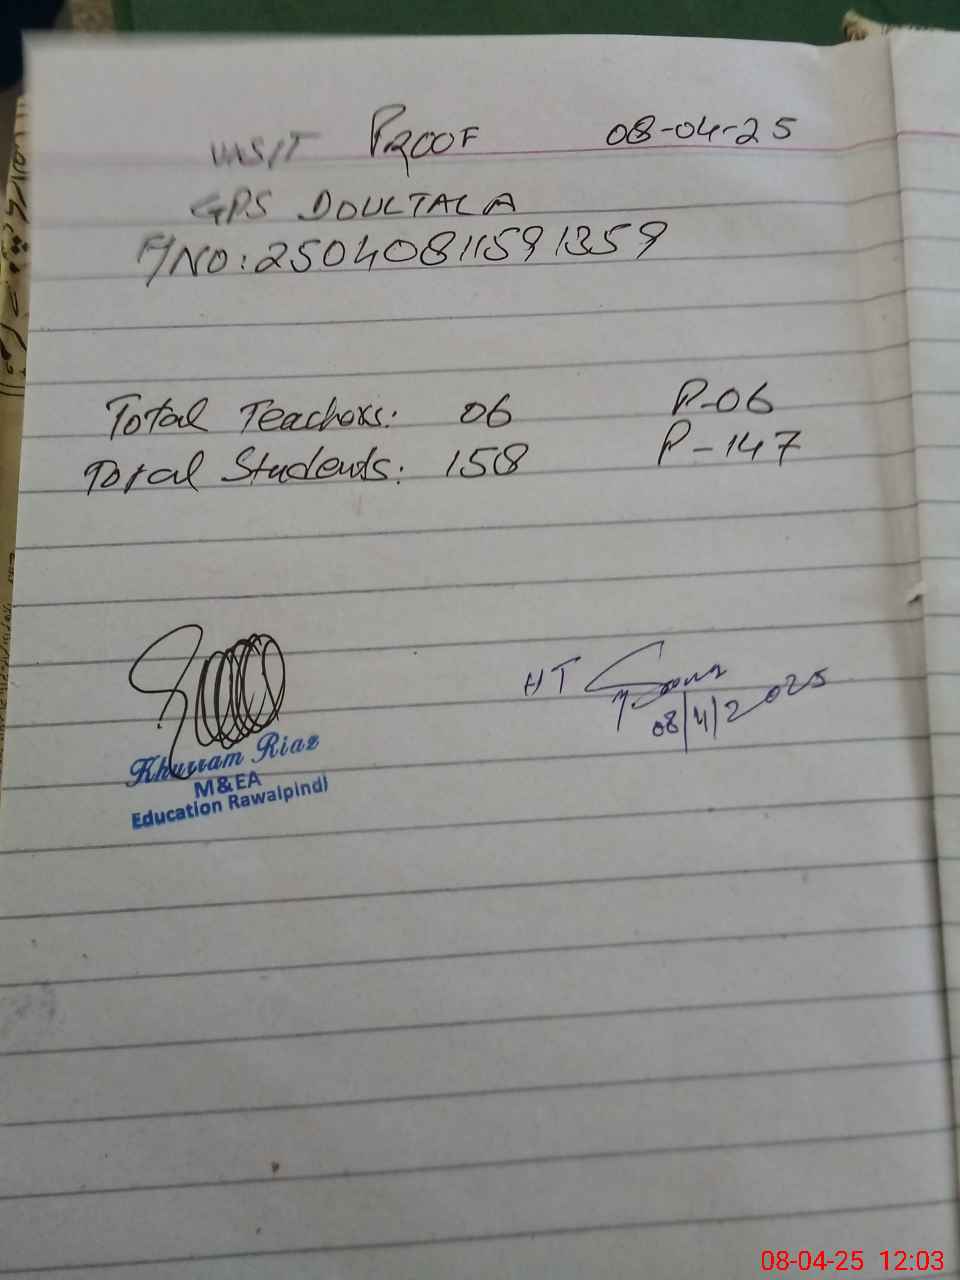 VISIT PROOF 08-04-25
GPS DOULTALA
F/NO: 25040811591359
Total Teachers: 06 P-06
Total Students: 158 P-147
HT
08/4/2025
Khurram Riaz
M&EA
Education Rawalpindi
08-04-25 12:03